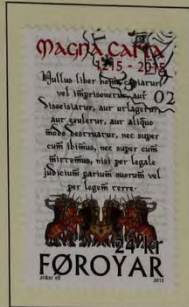 MAGNA CARTA
1215 - 2015
Nullus liber homo capiatur
vel imprisonetur, aut
disseisiatur, aut utlagetur,
aut exuletur, aut aliquo
modo destruatur, nec super
eum ibimus, nec super eum
mittemus, nisi per legale
judicium parium suorum vel
per legem terre.
02
24 kr
FØROYAR
2015